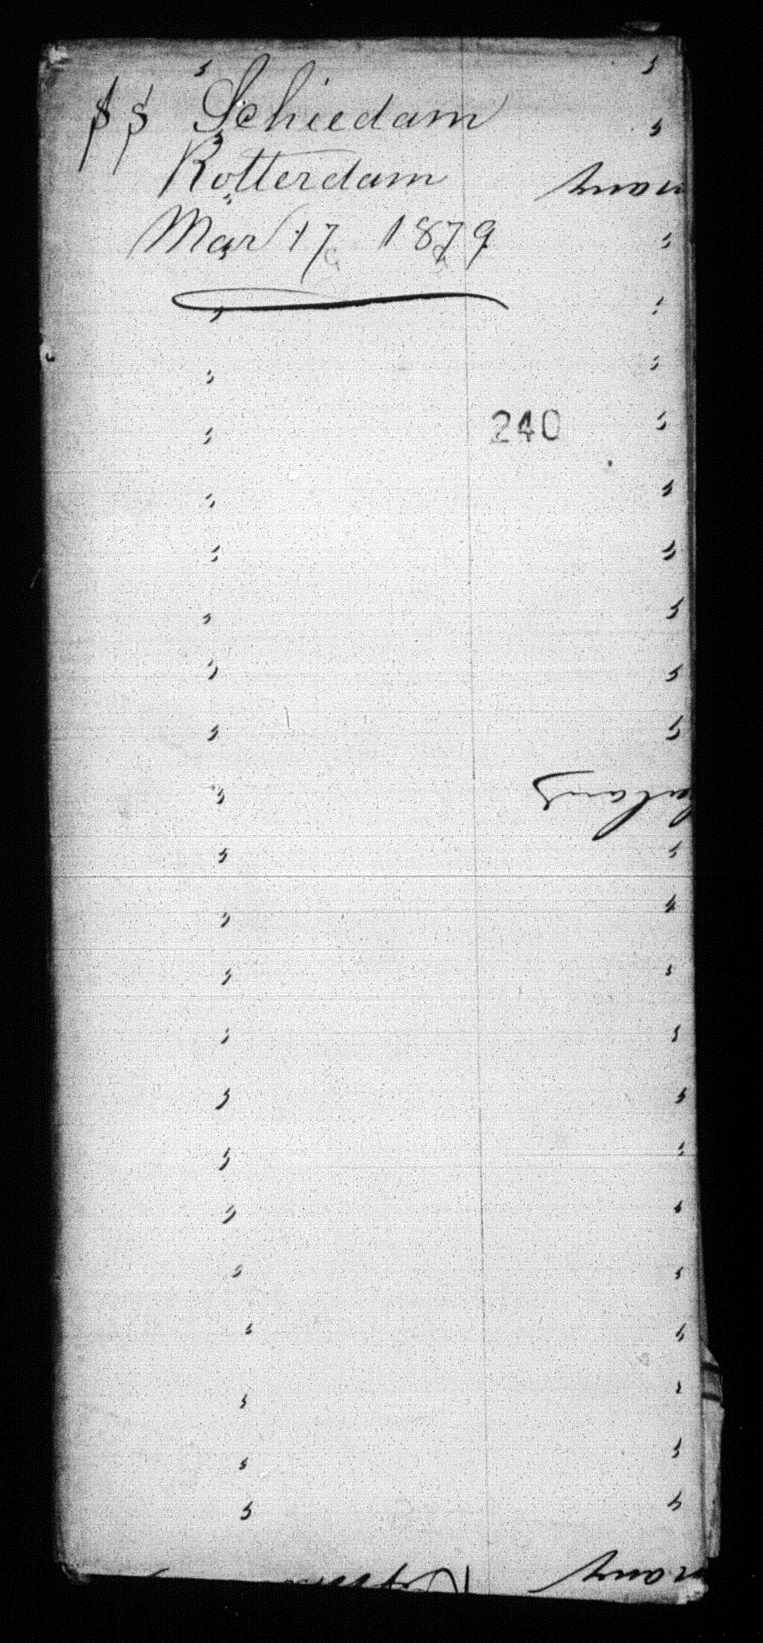 SS Schiedam
Rotterdam
Mar 17 1879
240